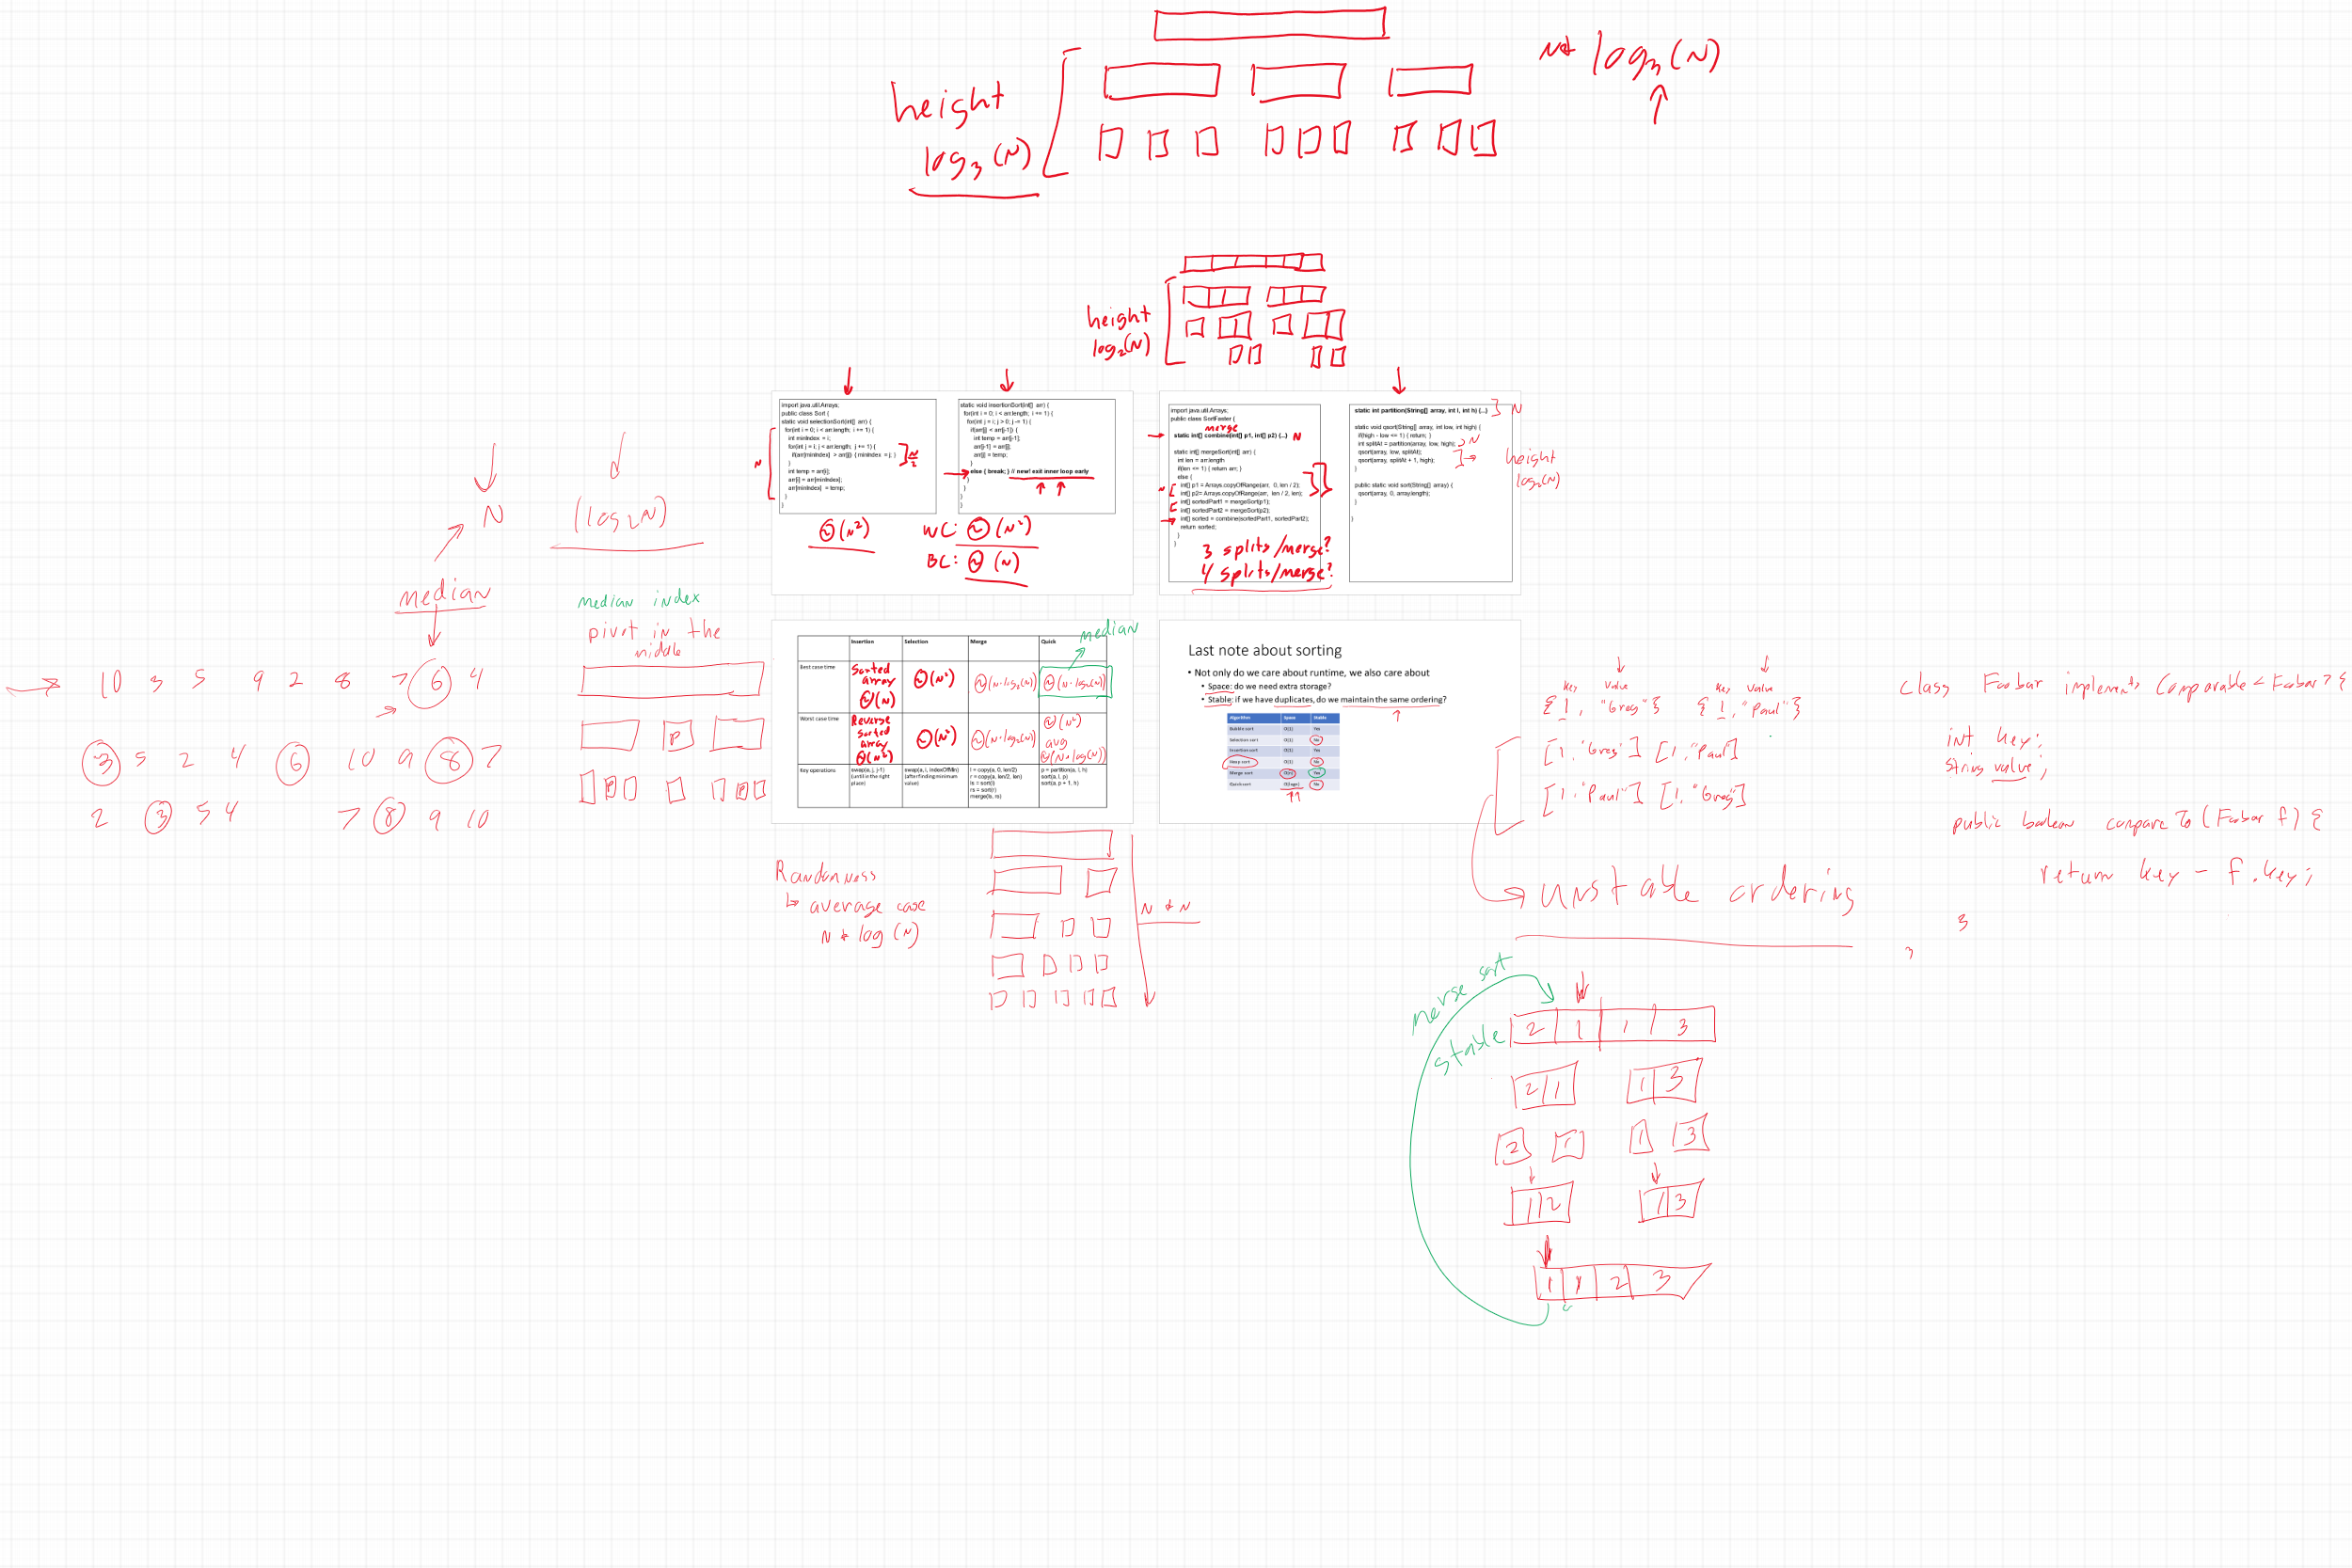 N * log₃(N)
height
log₃(N)
height
log₂(N)
import java.util.Arrays;
public class Sort {
static void selectionSort(int[] arr) {
for(int i = 0; i < arr.length; i += 1) {
int minIndex = i;
for(int j = i; j < arr.length; j += 1) {
if(arr[minIndex] > arr[j]) { minIndex = j; }
}
int temp = arr[i];
arr[i] = arr[minIndex];
arr[minIndex] = temp;
}
}
N
N/2
Θ(N²)
static void insertionSort(int[] arr) {
for(int i = 0; i < arr.length; i += 1) {
for(int j = i; j > 0; j -= 1) {
if(arr[j] < arr[j-1]) {
int temp = arr[j-1];
arr[j-1] = arr[j];
arr[j] = temp;
}
else { break; } // new! exit inner loop early
}
}
}
}
WC: Θ(N²)
BC: Θ(N)
import java.util.Arrays;
public class SortFaster {
merge
static int[] combine(int[] p1, int[] p2) {...} N
static int[] mergeSort(int[] arr) {
int len = arr.length
if(len <= 1) { return arr; }
else {
N
int[] p1 = Arrays.copyOfRange(arr, 0, len / 2);
int[] p2= Arrays.copyOfRange(arr, len / 2, len);
int[] sortedPart1 = mergeSort(p1);
int[] sortedPart2 = mergeSort(p2);
int[] sorted = combine(sortedPart1, sortedPart2);
return sorted;
}
}
3 splits/merge?
4 splits/merge?
static int partition(String[] array, int l, int h) {...} N
static void qsort(String[] array, int low, int high) {
if(high - low <= 1) { return; }
int splitAt = partition(array, low, high); N
qsort(array, low, splitAt);
qsort(array, splitAt + 1, high);
}
height
log₂(N)
public static void sort(String[] array) {
qsort(array, 0, array.length);
}
}
N
(log₂N)
median
median index
pivot in the
middle
10 3 5 9 2 8 7 6 4
3 5 2 4 6 10 9 8 7
2 3 5 4 7 8 9 10
P
P P
median
Insertion Selection Merge Quick
Best case time
Sorted array Θ(N)
Θ(N²)
Θ(N·log₂(N))
Θ(N·log₂(N))
Worst case time
Reverse Sorted array Θ(N²)
Θ(N²)
Θ(N·log₂(N))
Θ(N²)
avg
Θ(N*log(N))
Key operations
swap(a, j, j-1)
(until in the right
place)
swap(a, i, indexOfMin)
(after finding minimum
value)
l = copy(a, 0, len/2)
r = copy(a, len/2, len)
ls = sort(l)
rs = sort(r)
merge(ls, rs)
p = partition(a, l, h)
sort(a, l, p)
sort(a, p + 1, h)
Last note about sorting
• Not only do we care about runtime, we also care about
• Space: do we need extra storage?
• Stable: if we have duplicates, do we maintain the same ordering?
Algorithm Space Stable
Bubble sort O(1) Yes
Selection sort O(1) No
Insertion sort O(1) Yes
Heap sort O(1) No
Merge sort O(n) Yes
Quick sort No
Key Value Key Value
{1, "Greg"} {1, "Paul"}
[1, "Greg"] [1, "Paul"]
[1, "Paul"] [1, "Greg"]
unstable ordering
class Foobar implements Comparable<Foobar> {
int key;
String value;
public boolean compareTo(Foobar f) {
return key - f.key;
}
}
Randomness
↳ average case
N * log(N)
N * N
merge sort
stable
2 1 1 3
2 1 1 3
2 1 1 3
1 2 1 3
1 1 2 3